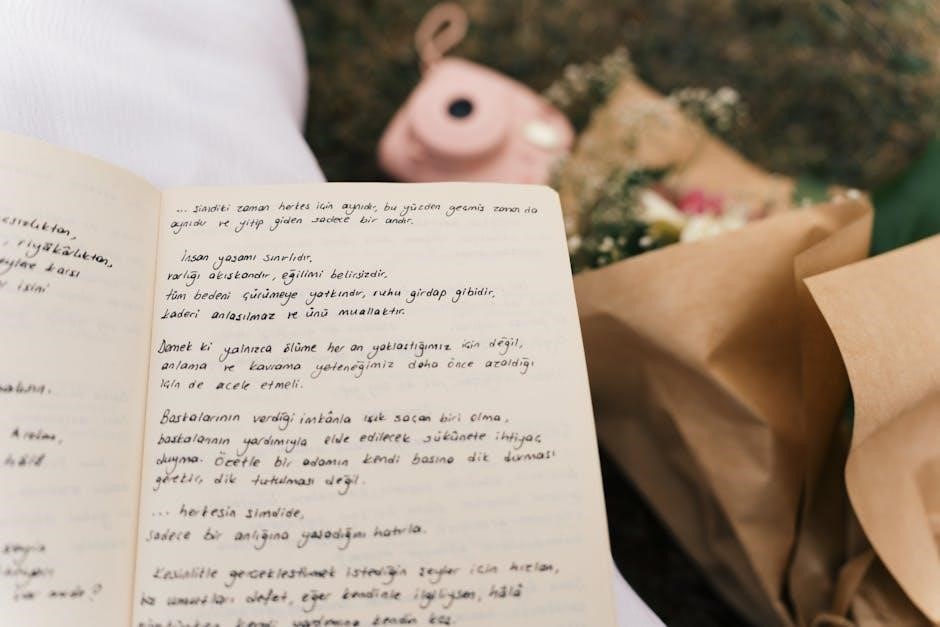 esizlikten,
, riyâkârlıktan,
eylere karşı
r isini
Arama,
hâlâ
... şimdiki zaman herkes için aynıdır, bu yüzden geçmiş zaman da
aynıdır ve yitip giden sadece bir andır.
İnsan yaşamı sınırlıdır,
varlığı akışkandır, eğilimi belirsizdir,
tüm bedeni çürümeye yatkındır, ruhu girdap gibidir,
kaderi anlaşılmaz ve ünü muallaktır.
Demek ki yalnızca ölüme her an yaklaştığımız için değil,
anlama ve kavrama yeteneğimiz daha önce azaldığı
için de acele etmeli.
Başkalarının verdiği imkânla ışık saçan biri olma,
başkalarının yardımıyla elde edilecek sükûnete ihtiyaç
duyma. Özetle bir adamın kendi başına dik durması
gerekir, dik tutulması değil.
... herkesin şimdide,
sadece bir anlığına yaşadığını hatırla.
Kesinlikle gerçekleştirmek istediğin şeyler için hızlan,
boş umutları defet, eğer kendinle ilgiliysen, hâlâ
mümkünken kendi yardımına kendin koş.